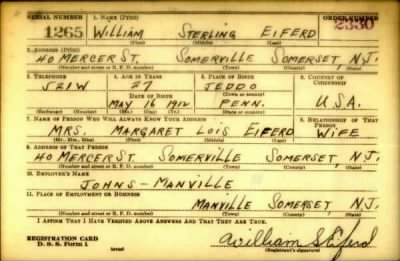 SERIAL NUMBER 1. NAME (Print) ORDER NUMBER
1265 WILLIAM STERLING EIFERD 2330
(First) (Middle) (Last)
2. ADDRESS (Print)
40 MERCER ST. SOMERVILLE SOMERSET N.J.
(Number and street or R. F. D. number) (Town) (County) (State)
3. TELEPHONE 4. AGE IN YEARS 5. PLACE OF BIRTH 6. COUNTRY OF CITIZENSHIP
521W 27 JEDDO
DATE OF BIRTH (Town or county)
MAY 16 1912 PENN. U.S.A.
(Exchange) (Number) (Mo.) (Day) (Yr.) (State or country)
7. NAME OF PERSON WHO WILL ALWAYS KNOW YOUR ADDRESS 8. RELATIONSHIP OF THAT PERSON
MRS. MARGARET LOIS EIFERD WIFE
(Mr., Mrs., Miss) (First) (Middle) (Last)
9. ADDRESS OF THAT PERSON
40 MERCER ST. SOMERVILLE SOMERSET, N.J.
(Number and street or R. F. D. number) (Town) (County) (State)
10. EMPLOYER'S NAME
JOHNS-MANVILLE
11. PLACE OF EMPLOYMENT OR BUSINESS
MANVILLE SOMERSET, N.J.
(Number and street or R. F. D. number) (Town) (County) (State)
I AFFIRM THAT I HAVE VERIFIED ABOVE ANSWERS AND THAT THEY ARE TRUE.
REGISTRATION CARD
D. S. S. Form 1 (over) William S Eiferd
(Registrant's signature)